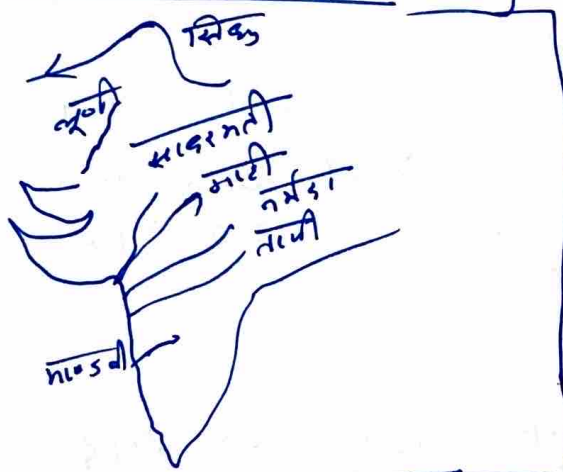 सिन्धु
लूणी
साबरमती
माही
नर्मदा
ताप्ती
माण्डवी